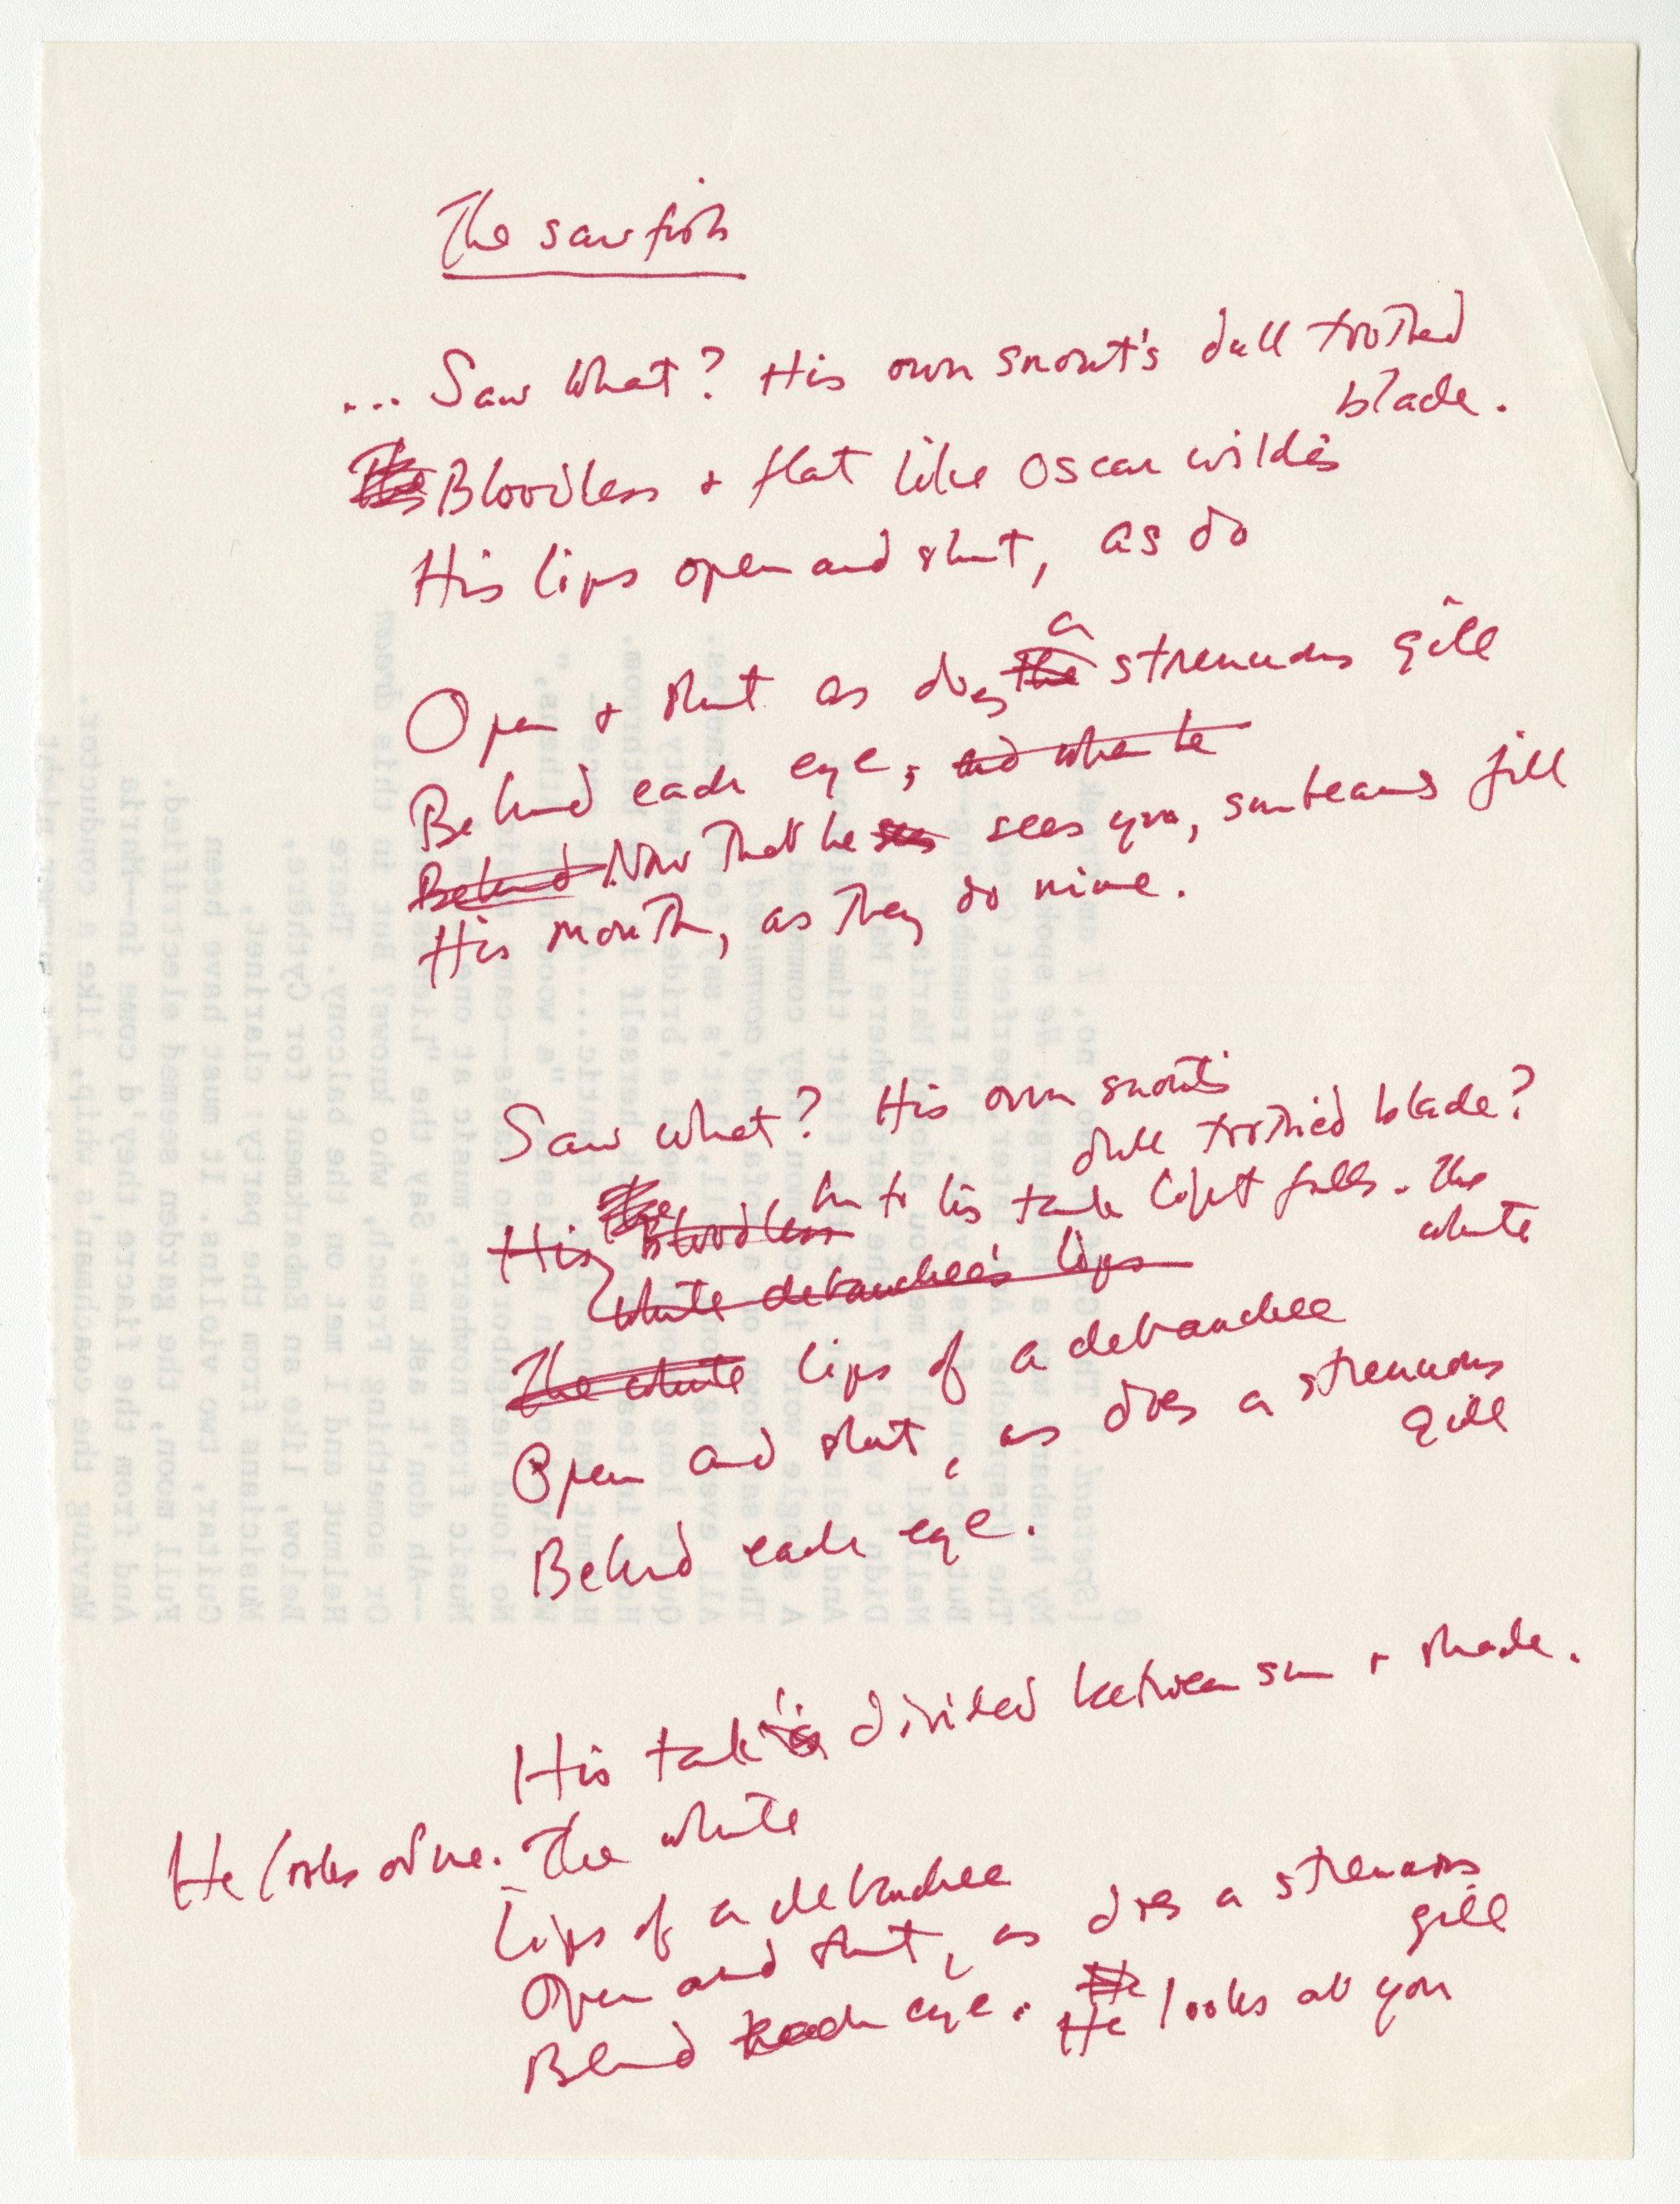 The sawfish
... Saw what? His own snout's dull toothed
blade.
The Bloodless + flat like Oscar Wilde's
His lips open and shut, as do
a
Open + shut as does the strenuous gill
Behind each eye; and when he
Behind Now that he sees sees you, sunbeams fill
His mouth, as they do mine.
Saw what? His own snout's
dull toothed blade?
His The Bloodless to his tank light falls. The
white
White debauchee's lips
The white lips of a debauchee
Open and shut, as does a strenuous
gill
Behind each eye.
His tank is divided between sun + shade.
He looks at me. The white
Lips of a debauchee
Open and shut, as does a strenuous
gill
Behind each eye. He He looks at you